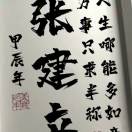 人生哪能多如
万事只求半称
张建立
甲辰年